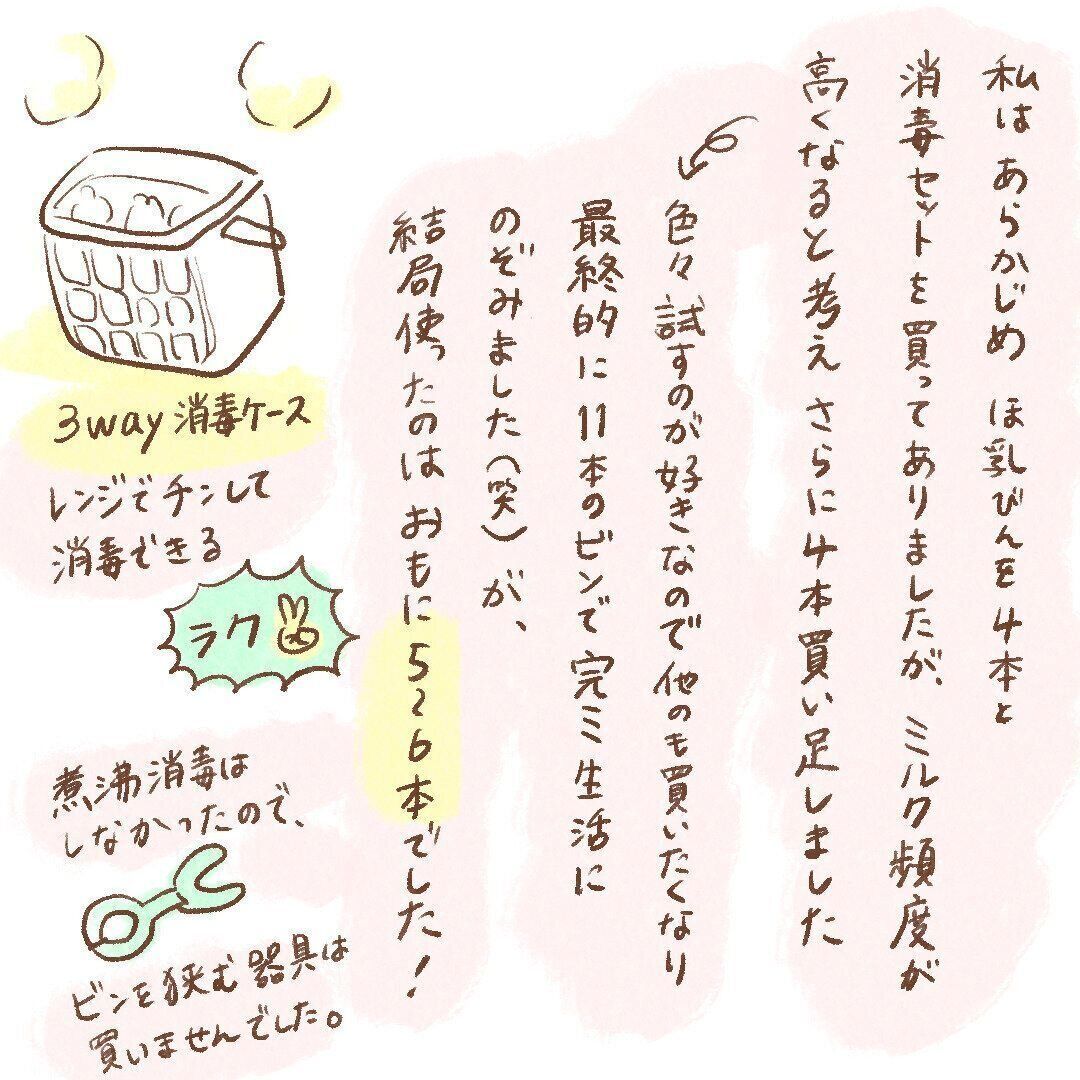 私は あらかじめ ほ乳びんを4本と
消毒セットを買ってありましたが、ミルク頻度が
高くなると考え さらに4本買い足しました
色々試すのが好きなので他のも買いたくなり
最終的に11本のビンで完ミ生活に
のぞみました(笑)が、
結局使ったのは おもに5~6本でした!
3way消毒ケース
レンジでチンして
消毒できる
ラク
煮沸消毒は
しなかったので、
ビンを狭む器具は
買いませんでした。